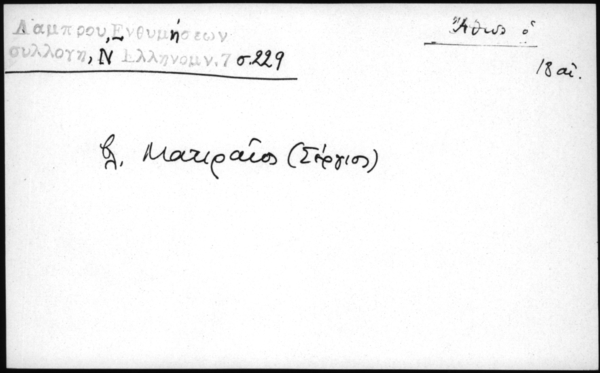 Λάμπρου, Ἐνθυμήσεων
συλλογή, Ν Ἑλληνομν. 7 σ. 229
Ἄθως ὁ
18 αἰ.
βλ. Μακραῖος (Σέργιος)